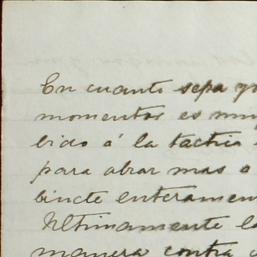 En cuanto sepa yo
momentos es muy
bido á la tactica
para abrar mas o
bincte enteramen
Ultimamente la
manera contra